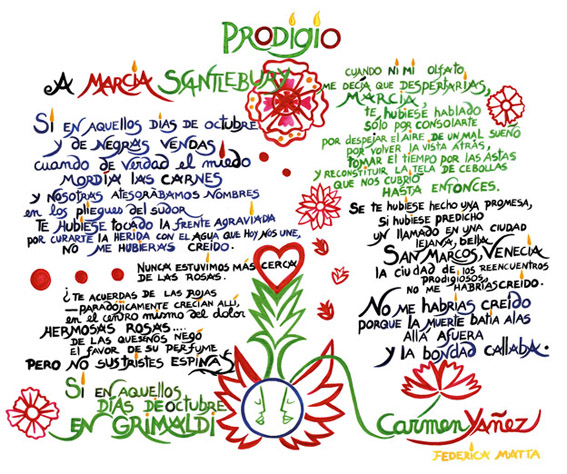 PRODIGIO
A MARCIA SCANTLEBURY
SI EN AQUELLOS DÍAS DE OCTUBRE
Y DE NEGRAS VENDAS
cuando de verdad el miedo
MORDÍA LAS CARNES
Y NOSOTRAS ATESORÁBAMOS NOMBRES
en los pliegues del sudor
TE HUBIESE TOCADO LA FRENTE AGRAVIADA
POR CURARTE LA HERIDA CON EL AGUA QUE HOY NOS UNE,
NO ME HUBIERAS CREÍDO.
NUNCA ESTUVIMOS MÁS CERCA
DE LAS ROSAS.
¿TE ACUERDAS DE LAS ROJAS
—PARADOJICAMENTE CRECÍAN ALLÍ,
en el centro mismo del dolor
HERMOSAS ROSAS....
DE LAS QUE SE NOS NEGÓ
EL FAVOR DE SU PERFUME
PERO NO SUS TRISTES ESPINAS
SI EN AQUELLOS
DÍAS DE OCTUBRE
EN GRIMALDI
CUANDO NI MI OLFATO
ME DECÍA QUE DESPERTARÍAS,
MARCIA,
te HUBIESE HABLADO
SÓLO POR CONSOLARTE
POR DESPEJAR EL AIRE, DE UN MAL SUEÑO
POR VOLVER LA VISTA ATRÁS,
TOMAR EL TIEMPO POR LAS ASTAS
Y RECONSTITUIR LA TELA DE CEBOLLAS
QUE NOS CUBRIÓ
HASTA ENTONCES.
SE TE HUBIESE HECHO UNA PROMESA,
SI HUBIESE PREDICHO
UN LLAMADO EN UNA CIUDAD
LEJANA, BELLA
SAN MARCOS, VENECIA
LA CIUDAD DE LOS REENCUENTROS
PRODIGIOSOS,
NO ME HABRÍAS CREÍDO.
NO ME HABRÍAS CREÍDO
PORQUE LA MUERTE BATÍA ALAS
ALLÁ AFUERA
Y LA BONDAD CALLABA.
CARMEN YÁÑEZ
FEDERICA MATTA